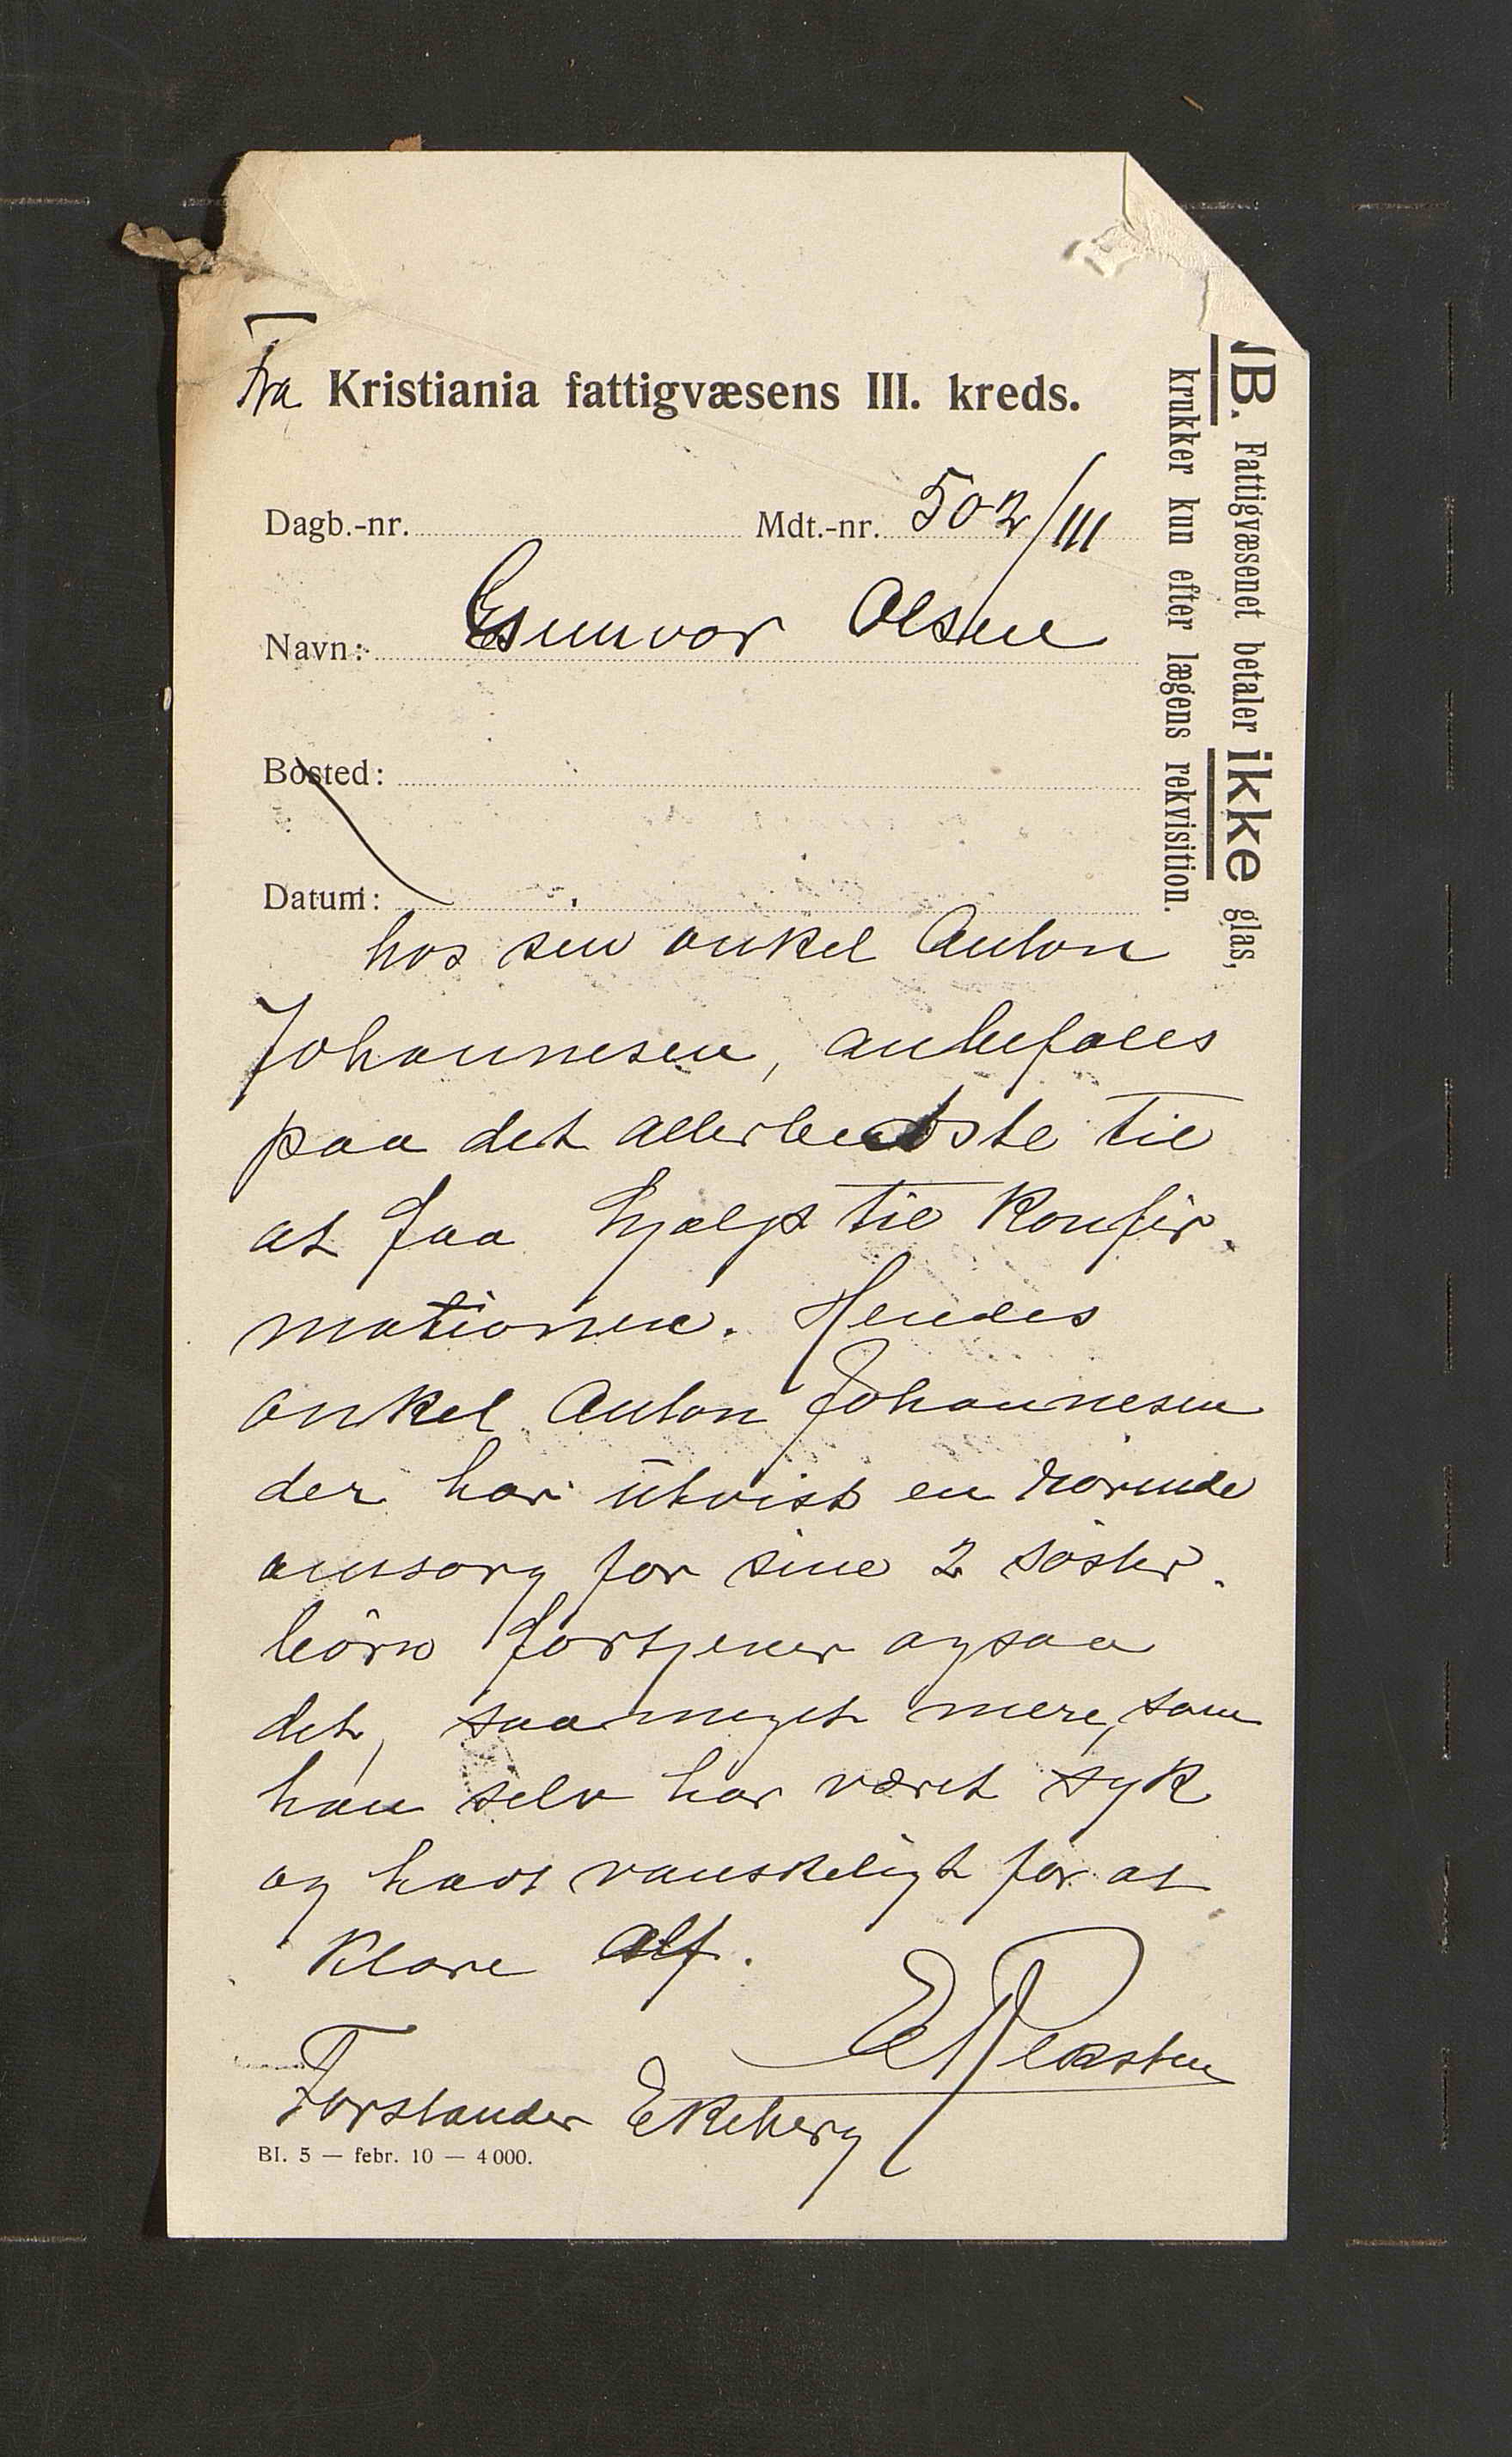 Fra Kristiania fattigvæsens III. kreds.
Dagb.-nr. Mdt.-nr. 502/III
Navn: Gunvor Olsen
Bosted:
Datum:
hos sin onkel Anton
Johannesen, anbefales
paa det allerbedste til
at faa hjælp til Konfir-
mationen. Hendes
onkel Anton Johannesen
der har utvist en rørende
omsorg for sine 2 søster-
børn fortjener ogsaa
det, saa meget mere, som
han selv har været syk
og havt vanskeligt for at
klare alt.
Forstander Ekeberg
Bl. 5 — febr. 10 — 4000.
NB. Fattigvæsenet betaler ikke glas,
krukker kun efter lægens rekvisition.